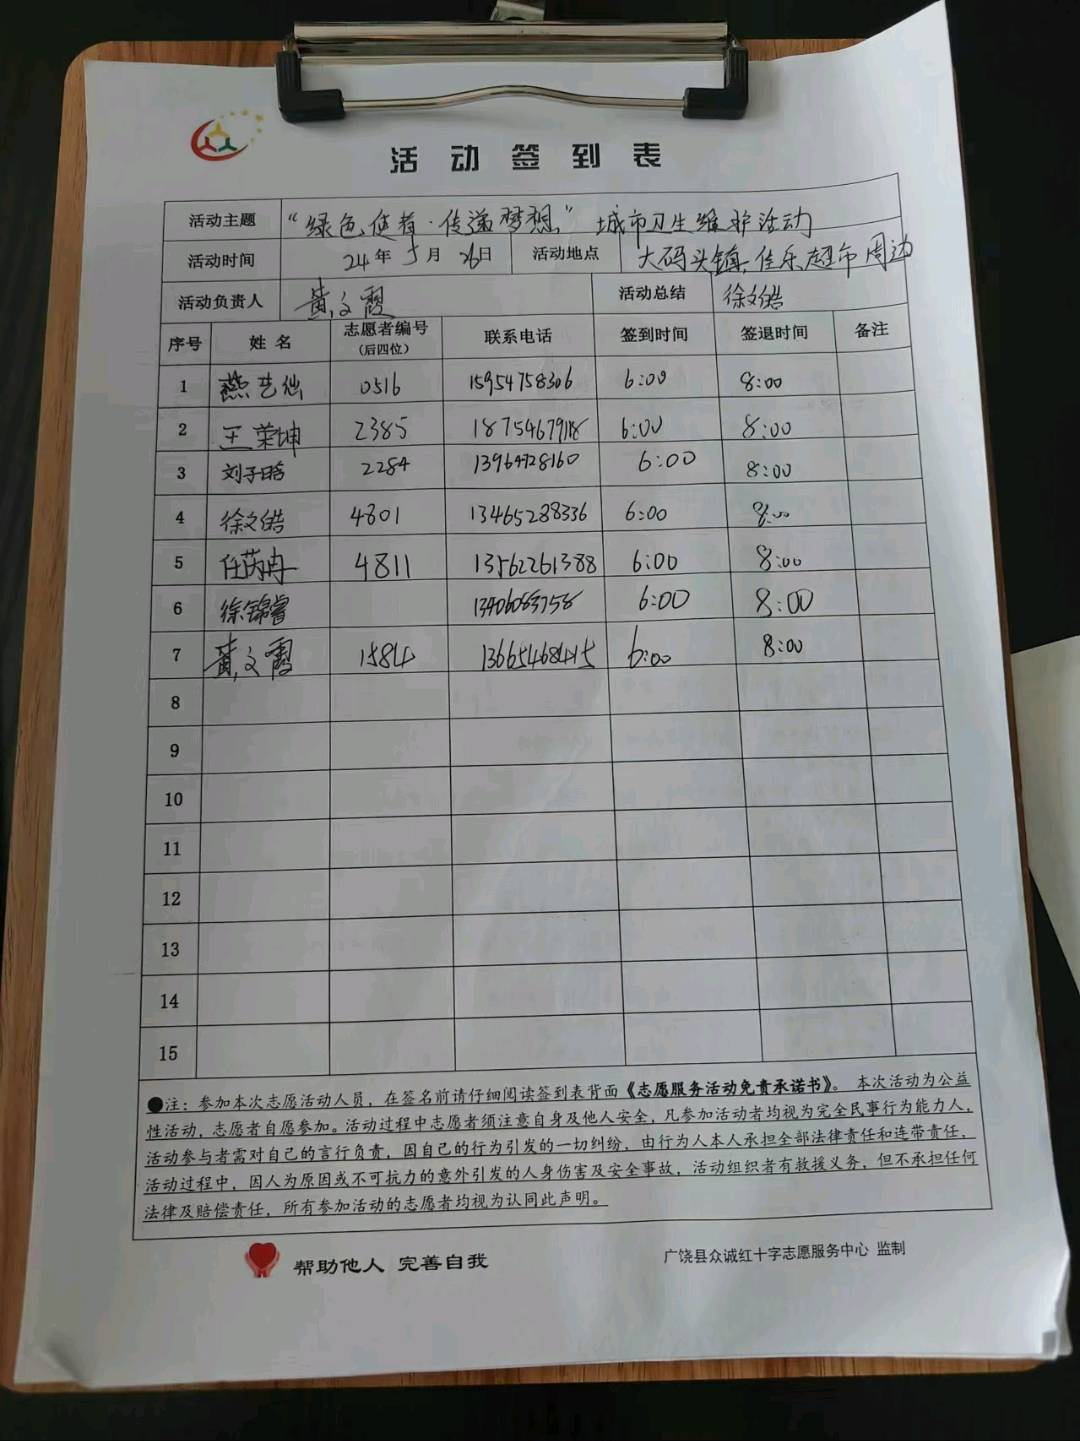 活动签到表
活动主题 “绿色使者·传递梦想”城市卫生维护活动
活动时间 24年5月26日 活动地点 大码头镇佳乐超市周边
活动负责人 黄文霞 活动总结 徐文皓
序号 姓名 志愿者编号（后四位） 联系电话 签到时间 签退时间 备注
1 燕艺仙 0516 15954758306 6:00 8:00
2 王荣坤 2385 6:00 8:00
3 刘子晗 2284 13964728160 6:00 8:00
4 徐文皓 4801 13465288336 6:00 8:00
5 任芮冉 4811 13562261388 6:00 8:00
6 徐锦睿 13406083758 6:00 8:00
7 黄文霞 1584 13665468415 6:00 8:00
8
9
10
11
12
13
14
15
●注：参加本次志愿活动人员，在签名前请仔细阅读签到表背面《志愿服务活动免责承诺书》。本次活动为公益
性活动，志愿者自愿参加。活动过程中志愿者须注意自身及他人安全，凡参加活动者均视为完全民事行为能力人，
活动参与者需对自己的言行负责，因自己的行为引发的一切纠纷，由行为人本人承担全部法律责任和连带责任，
活动过程中，因人为原因或不可抗力的意外引发的人身伤害及安全事故，活动组织者有救援义务，但不承担任何
法律及赔偿责任，所有参加活动的志愿者均视为认同此声明。
帮助他人 完善自我 广饶县众诚红十字志愿服务中心 监制